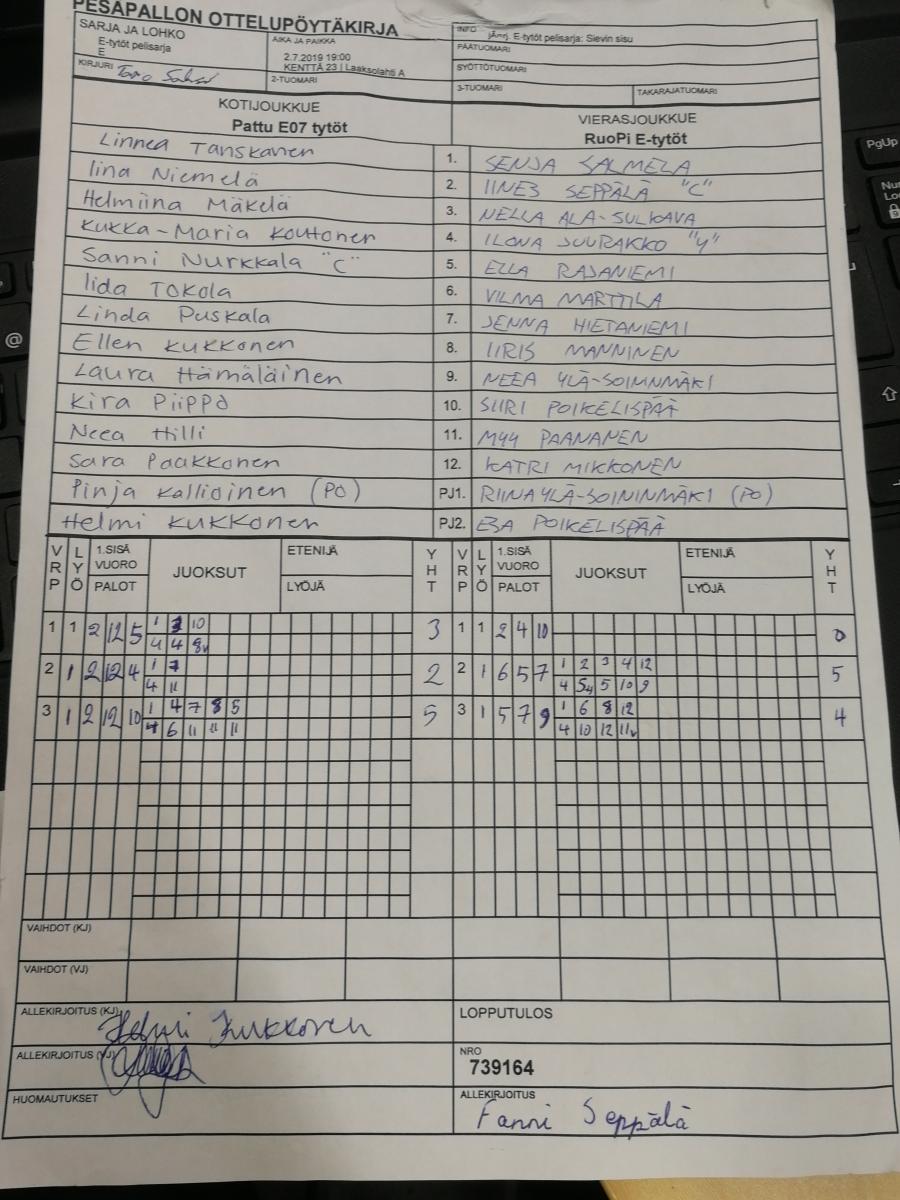 PESÄPALLON OTTELUPÖYTÄKIRJA
SARJA JA LOHKO
E-tytöt pelisarja
E
KIRJURI
AIKA JA PAIKKA
2.7.2019 19:00
KENTTÄ 23 | Laaksolahti A
2-TUOMARI
INFO Järj. E-tytöt pelisarja: Sievin sisu
PÄÄTUOMARI
SYÖTTÖTUOMARI
3-TUOMARI TAKARAJATUOMARI
KOTIJOUKKUE VIERASJOUKKUE
Pattu E07 tytöt RuoPi E-tytöt
Linnea Tanskanen 1. SENJA SALMELA
Iina Niemelä 2. IINES SEPPÄLÄ "C"
Helmiina Mäkelä 3. NELLA ALA-SULKAVA
Kukka-Maria Koutonen 4. ILONA JUURAKKO "Y"
Sanni Nurkkala "C" 5. ELLA RAJANIEMI
Iida TOKOLA 6. VILMA MARTTILA
Linda Puskala 7. JENNA HIETANIEMI
Ellen KUKKONEN 8. IIRIS MANNINEN
Laura Hämäläinen 9. NEEA YLÄ-SOININMÄKI
Kira Piippo 10. SIIRI POIKELISPÄÄ
Neea Hilli 11. MYY PAANANEN
Sara Paakkonen 12. KATRI MIKKONEN
Pinja Kallioinen (PO) PJ1. RIINA YLÄ-SOININMÄKI (PO)
Helmi KUKKONEN PJ2. ESA POIKELISPÄÄ
VRP LYÖ 1.SISÄ VUORO PALOT JUOKSUT ETENIJÄ LYÖJÄ YHT VRP LYÖ 1.SISÄ VUORO PALOT JUOKSUT ETENIJÄ LYÖJÄ YHT
1 1 2 12 5 1 3 10 3 1 1 2 4 10 0
4 4 8v
2 1 2 12 4 1 7 2 2 1 6 5 7 1 2 3 4 12 5
4 11 4 5 10 9
3 1 2 12 10 1 4 7 8 5 5 3 1 5 7 9 1 6 8 12 4
4 6 11 11 11 4 10 12 11v
VAIHDOT (KJ)
VAIHDOT (VJ)
ALLEKIRJOITUS (KJ) Helmi Kukkonen
LOPPUTULOS
ALLEKIRJOITUS (VJ)
NRO
739164
HUOMAUTUKSET
ALLEKIRJOITUS
Fanni Seppälä